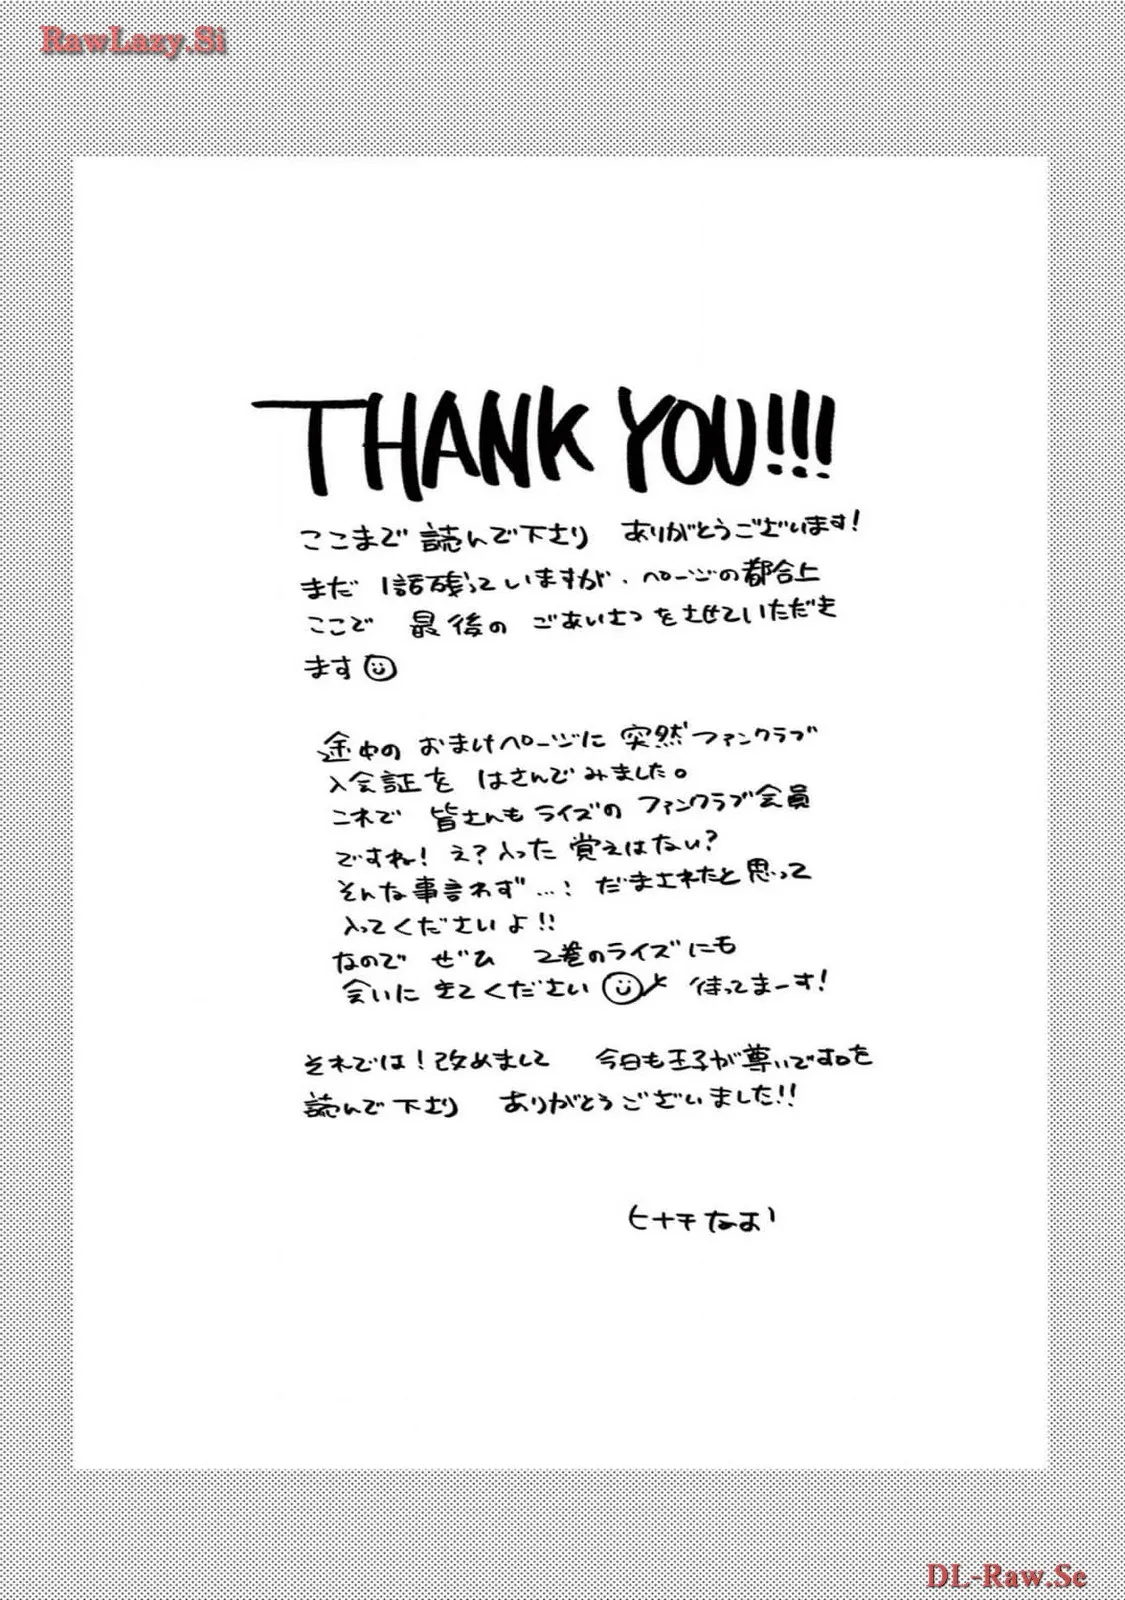 RawLazy.Si
THANK YOU!!!
ここまで 読んで下さり ありがとうございます!
まだ 1話残っていますが、ページの都合上
ここで 最後の ごあいさつをさせていただき
ます
途中の おまけページに 突然ファンクラブ
入会証を はさんでみました。
これで 皆さんもライズの ファンクラブ会員
ですね! え?入った 覚えはない?
そんな事言わず…! だまされたと思って
入ってくださいよ!!
なので ぜひ 2巻のライズにも
会いに きてください 待ってまーす!
それでは!改めまして 今日も王子が尊いです。を
読んで下さり ありがとうございました!!
ヒナチなお
DL-Raw.Se